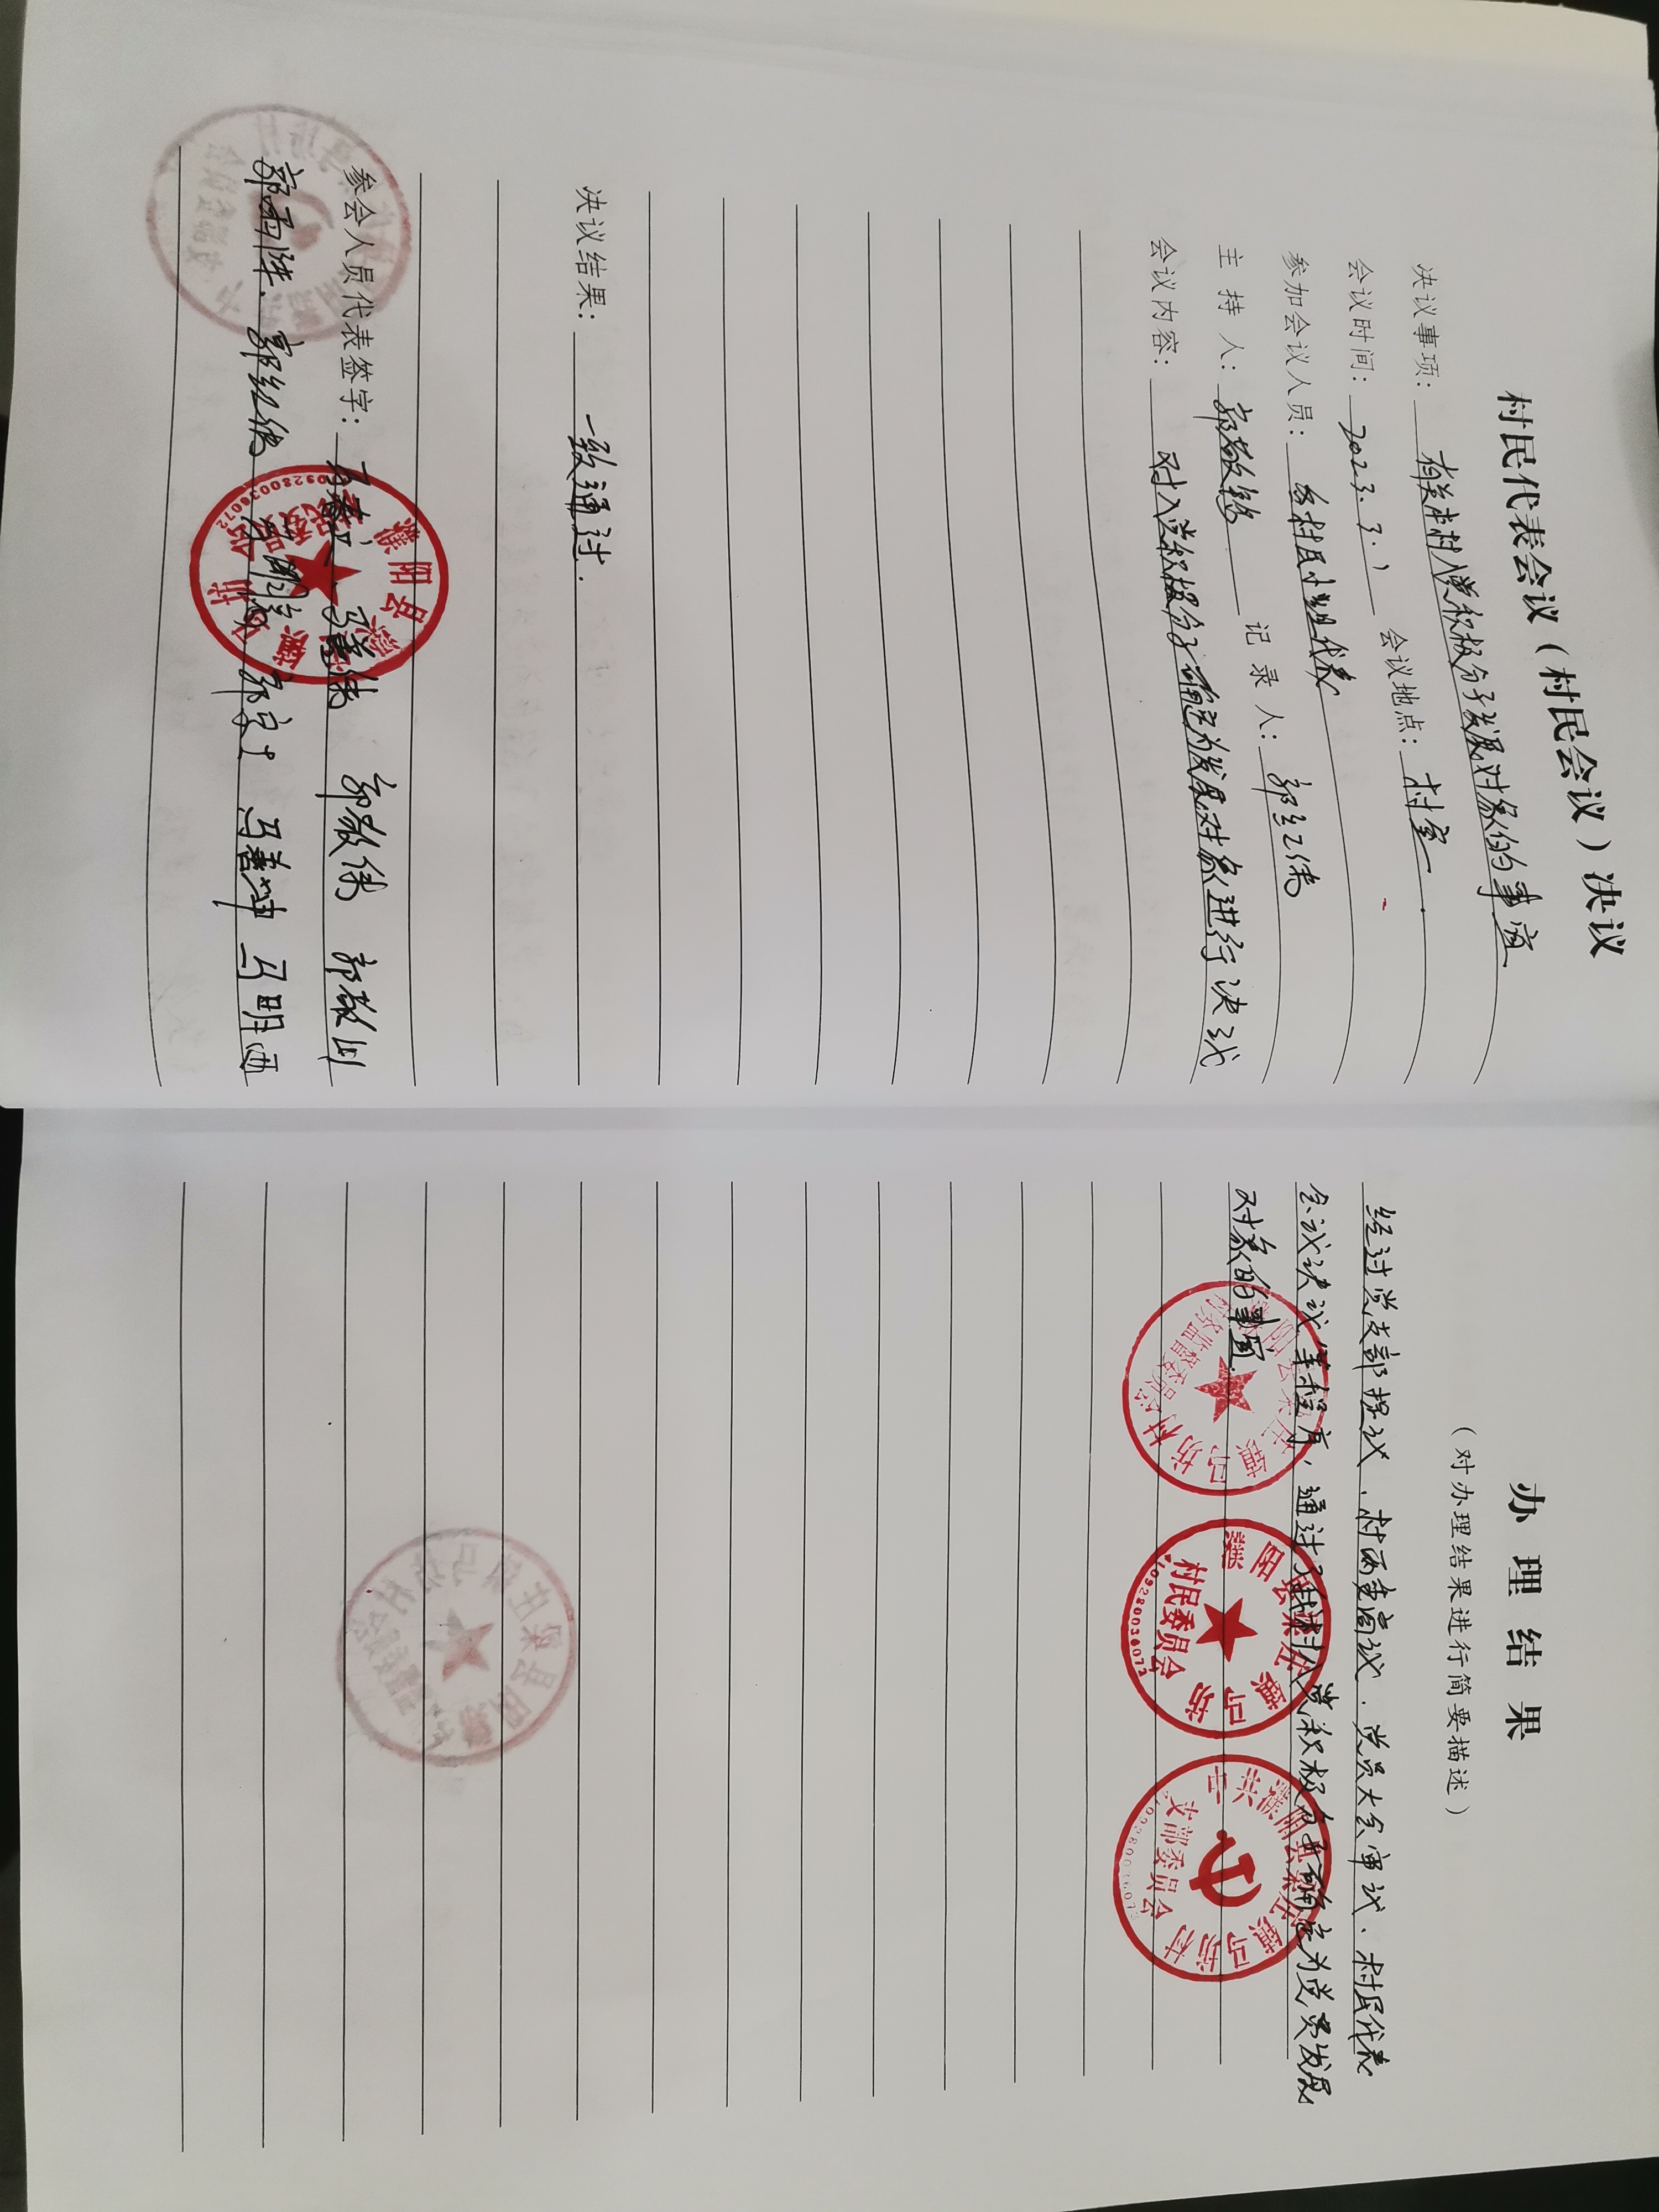 村民代表会议（村民会议）决议
决议事项: 有关本村入党积极分子发展对象的事宜
会议时间: 2023.3.1 会议地点: 村室
参加会议人员: 各村民小组代表
主 持 人: 郭敬 记 录 人: 郭红伟
会议内容: 对入党积极分子确定为发展对象进行决议
决议结果: 一致通过.
参会人员代表签字: 马春立 马善伟 郭敬伟 郭敬山
郭雨阵. 郭红伟 郭宗士 马善坤 马明西
濮阳县梁庄镇马坊
村民委员会
4109280036072
办理结果
（对办理结果进行简要描述）
经过党支部提议、村两委商议、党员大会审议、村民代表
会议决议等程序，通过了我村入党积极分子确定为党员发展
对象的事宜.
濮阳县梁庄镇马坊村
村务监督委员会
濮阳县梁庄镇马坊
村民委员会
4109280036072
中共濮阳县梁庄镇马坊村
支部委员会
4109280036072